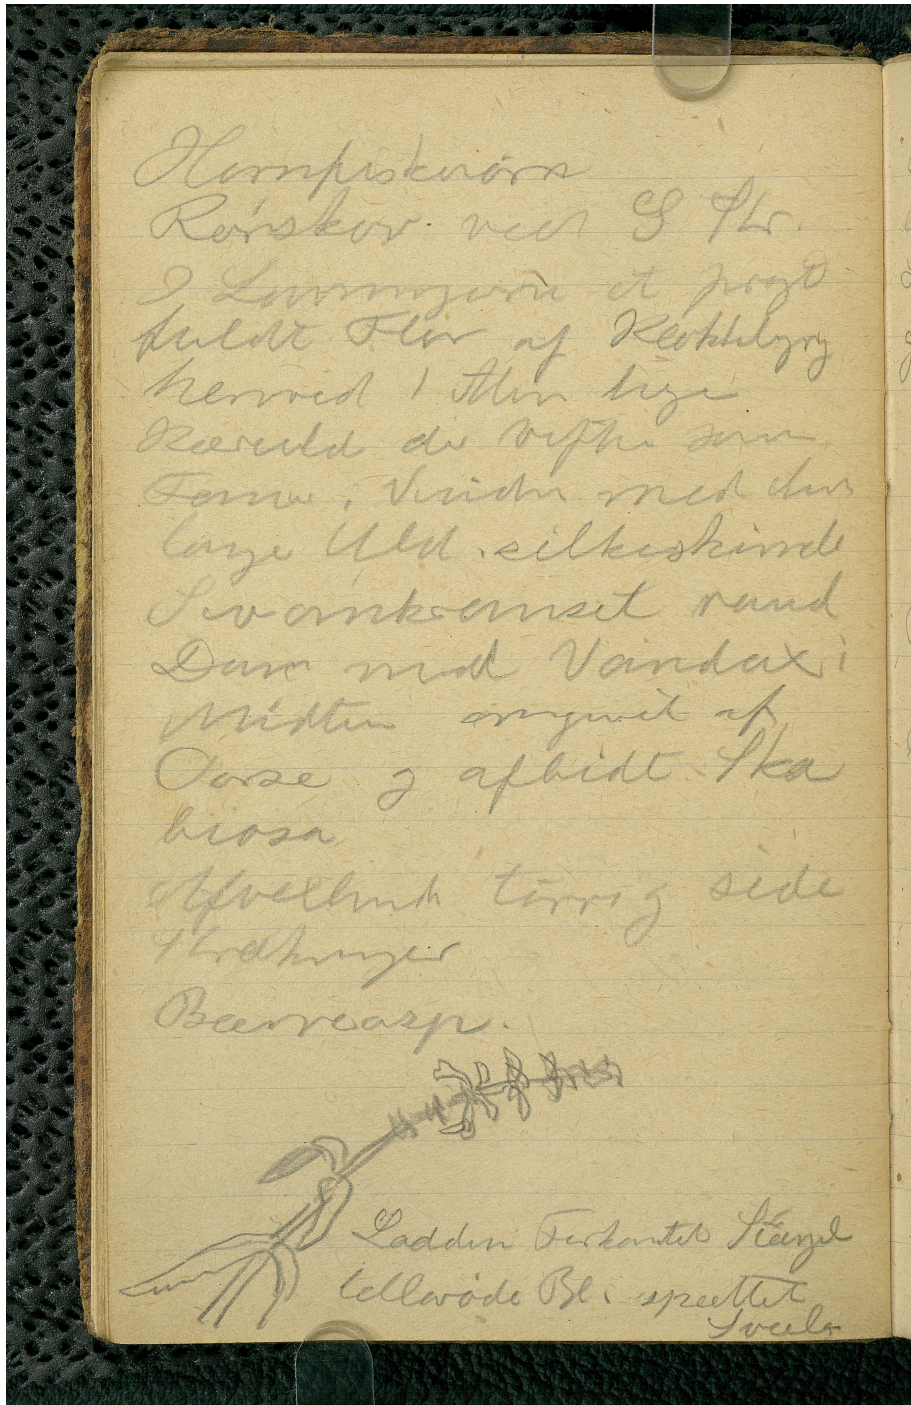 Hornfiskeørn
Rørskov ved S Str.
I Lavningerne et pragt
fuldt Flor af Klokkelyng
herved 1 Alen høje
Kæruld der vifte som
Faner i Vinden med den
lange Uld silkeskinnde
Sivomkranset rund
Dam med Vandax i
Midten omgivet af
Porse og afbidt Ska
biosa
Afvexlende tørre og side
Strækninger
Bævreasp.
Lodden Firkantet Stængel
lillarøde Bl. spættet
Svælg